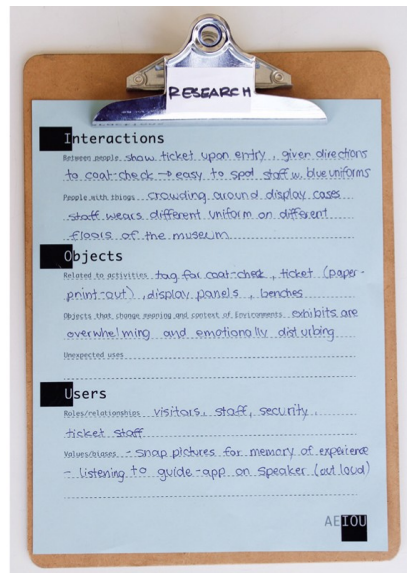 RESEARCH
Interactions
Between people show ticket upon entry, given directions
to coat-check → easy to spot staff w. blue uniforms
People with things crowding around display cases
staff wears different uniform on different
floors of the museum
Objects
Related to activities tag for coat-check, ticket (paper-
print-out), display panels, benches
Objects that change meaning and context of Environments exhibits are
overwhelming and emotionally disturbing
Unexpected uses
Users
Roles/relationships visitors, staff, security,
ticket staff
Values/biases - snap pictures for memory of experience
- listening to guide-app on speaker (out loud)
AEIOU